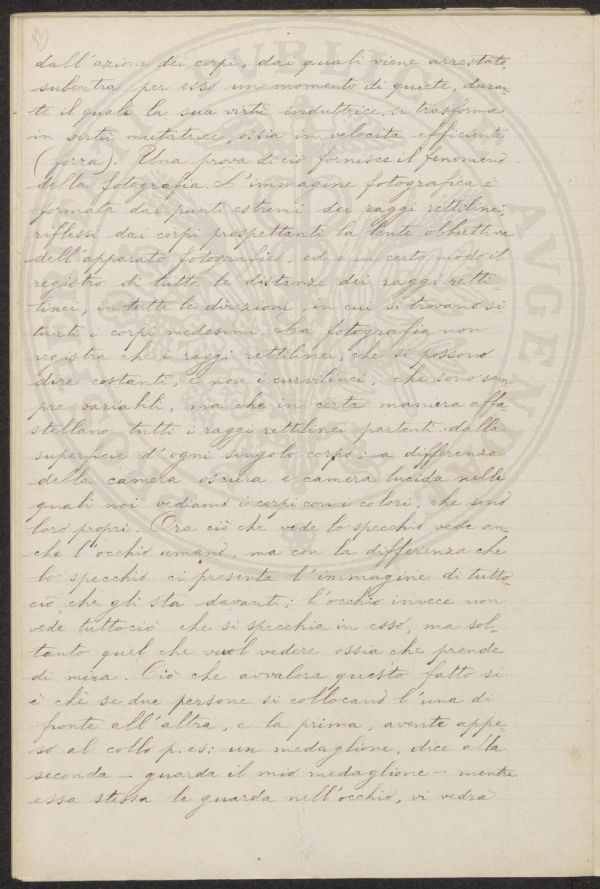 dall'azione dei corpi, dai quali viene arrestato,
subentra per esso un momento di quiete, duran-
te il quale la sua virtù induttrice, si trasforma
in virtù mutatrice, ossia in velocità efficiente
(forza). Una prova di ciò fornisce il fenomeno
della fotografia. L'immagine fotografica è
formata dai punti estremi dei raggi rettilinei,
riflessi dai corpi prospettanti la lente obbiettiva
dell'apparato fotografico, ed è in certo modo il
registro di tutte le distanze dei raggi retti-
linei, in tutte le direzioni, in cui si trovano si
tuati i corpi medesimi. La fotografia non
registra che i raggi rettilinei, che si possono
dire costanti, e non i curvilinei, che sono sem
pre variabili, ma che in certa maniera affa
stellano tutti i raggi rettilinei partenti dalla
superficie d'ogni singolo corpo; a differenza
della camera oscura e camera lucida nelle
quali noi vediamo i corpi con i colori, che sono
loro propri. Ora ciò che vede lo specchio vede an-
che l'occhio umano, ma con la differenza che
lo specchio ci presenta l'immagine di tutto
ciò, che gli sta davanti; l'occhio invece non
vede tuttociò che si specchia in esso, ma sol-
tanto quel che vuol vedere ossia che prende
di mira. Ciò che avvalora questo fatto si
è chè se due persone si collocano l'una di
fronte all'altra, e la prima, avente appe-
so al collo p.es: un medaglione, dice alla
seconda - guarda il mio medaglione - mentre
essa stessa le guarda nell'occhio, vi vedrà